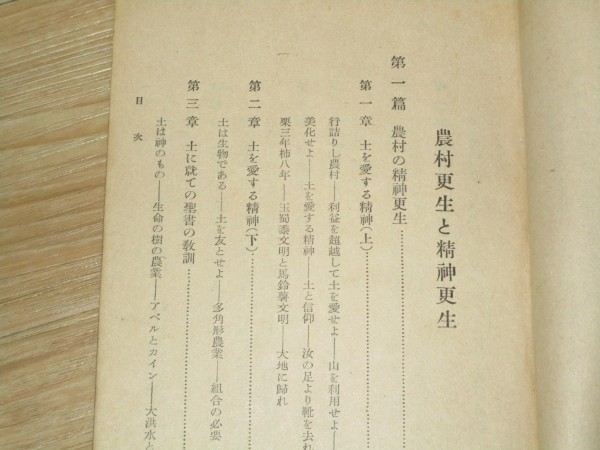 農村更生と精神更生
第一篇 農村の精神更生
第一章 土を愛する精神(上)
行詰りし農村――利益を超越して土を愛せよ――山を利用せよ――
美化せよ――土を愛する精神――土と信仰――汝の足より靴を去れ
栗三年柿八年――玉蜀黍文明と馬鈴薯文明――大地に歸れ
第二章 土を愛する精神(下)
土は生物である――土を友とせよ――多角形農業――組合の必要
第三章 土に就ての聖書の敎訓
土は神のもの――生命の樹の農業――アベルとカイン――大洪水と
目次